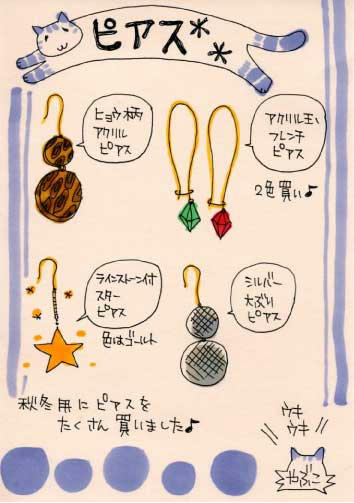 ピアス**
ヒョウ柄
アクリル
ピアス
アクリル玉
フレンチ
ピアス
2色買い♪
ラインストーン付
スター
ピアス
色はゴールド
シルバー
大ぶり
ピアス
秋冬用にピアスを
たくさん買いました♪
ウキ
ウキ
やぶこ